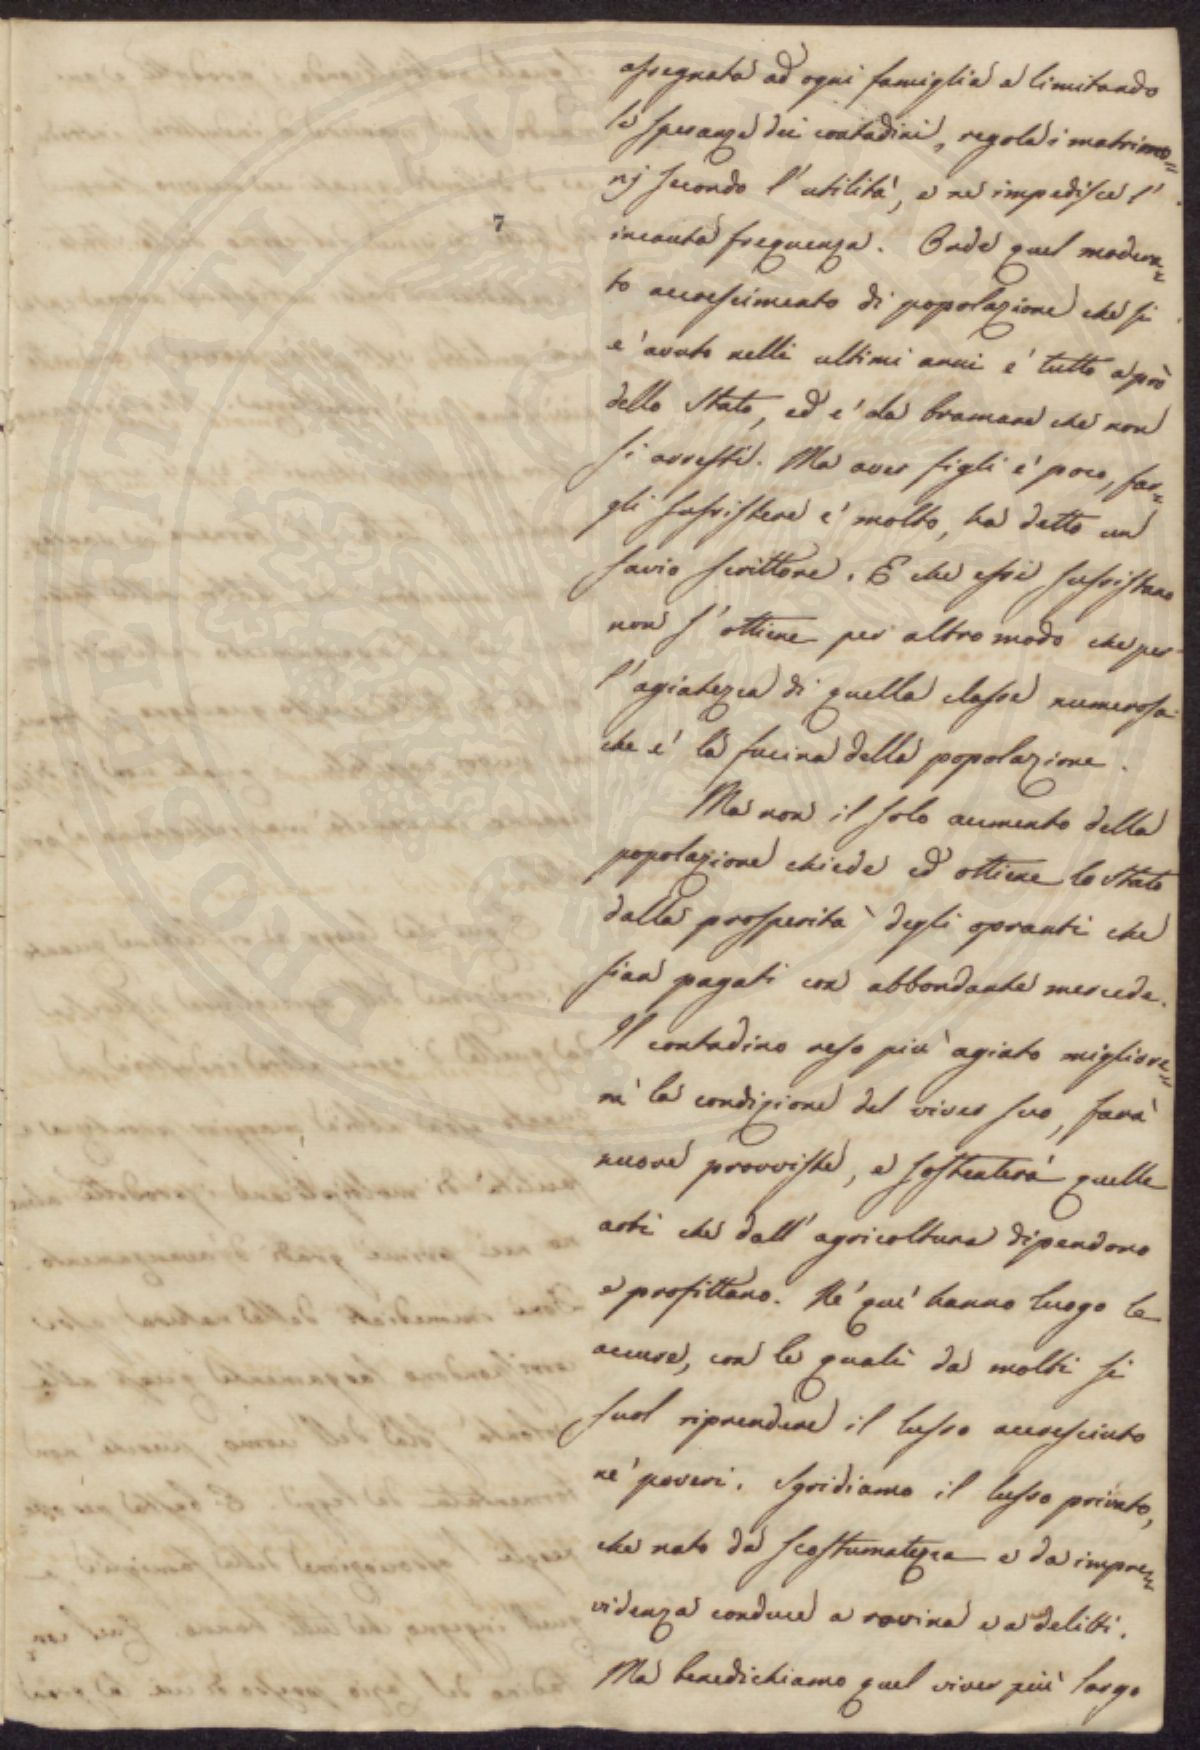 7
assegnata ad ogni famiglia e limitando
le speranze dei contadini, regola i matrimo=
nj secondo l'utilità, e ne impedisce l'
incauta frequenza. Onde quel modera=
to accrescimento di popolazione che si
e' avuto nelli ultimi anni e' tutto a prò
dello Stato, ed e' da bramare che non
si arresti. Ma aver figli e' poco, far=
gli sussistere e' molto, ha detto un
savio scrittore. E che essi sussistano
non s'ottiene per altro modo che per
l'agiatezza di quella classe numerosa
che e' la fucina della popolazione.
Ma non il solo aumento della
popolazione chiede ed ottiene lo Stato
dalla prosperità degli opranti che
sian pagati con abbondante mercede.
Il contadino reso più agiato migliore=
rà la condizione del viver suo, farà
nuove provviste, e sostenterà quelle
arti che dall'agricoltura dipendono
e profittano. Nè quì hanno luogo le
accuse, con le quali da molti si
suol riprendere il lusso accresciuto
ne' poveri. Sgridiamo il lusso privato,
che nato da scostumatezza e da impre=
videnza conduce a rovina e a delitti.
Ma benedichiamo quel viver più largo